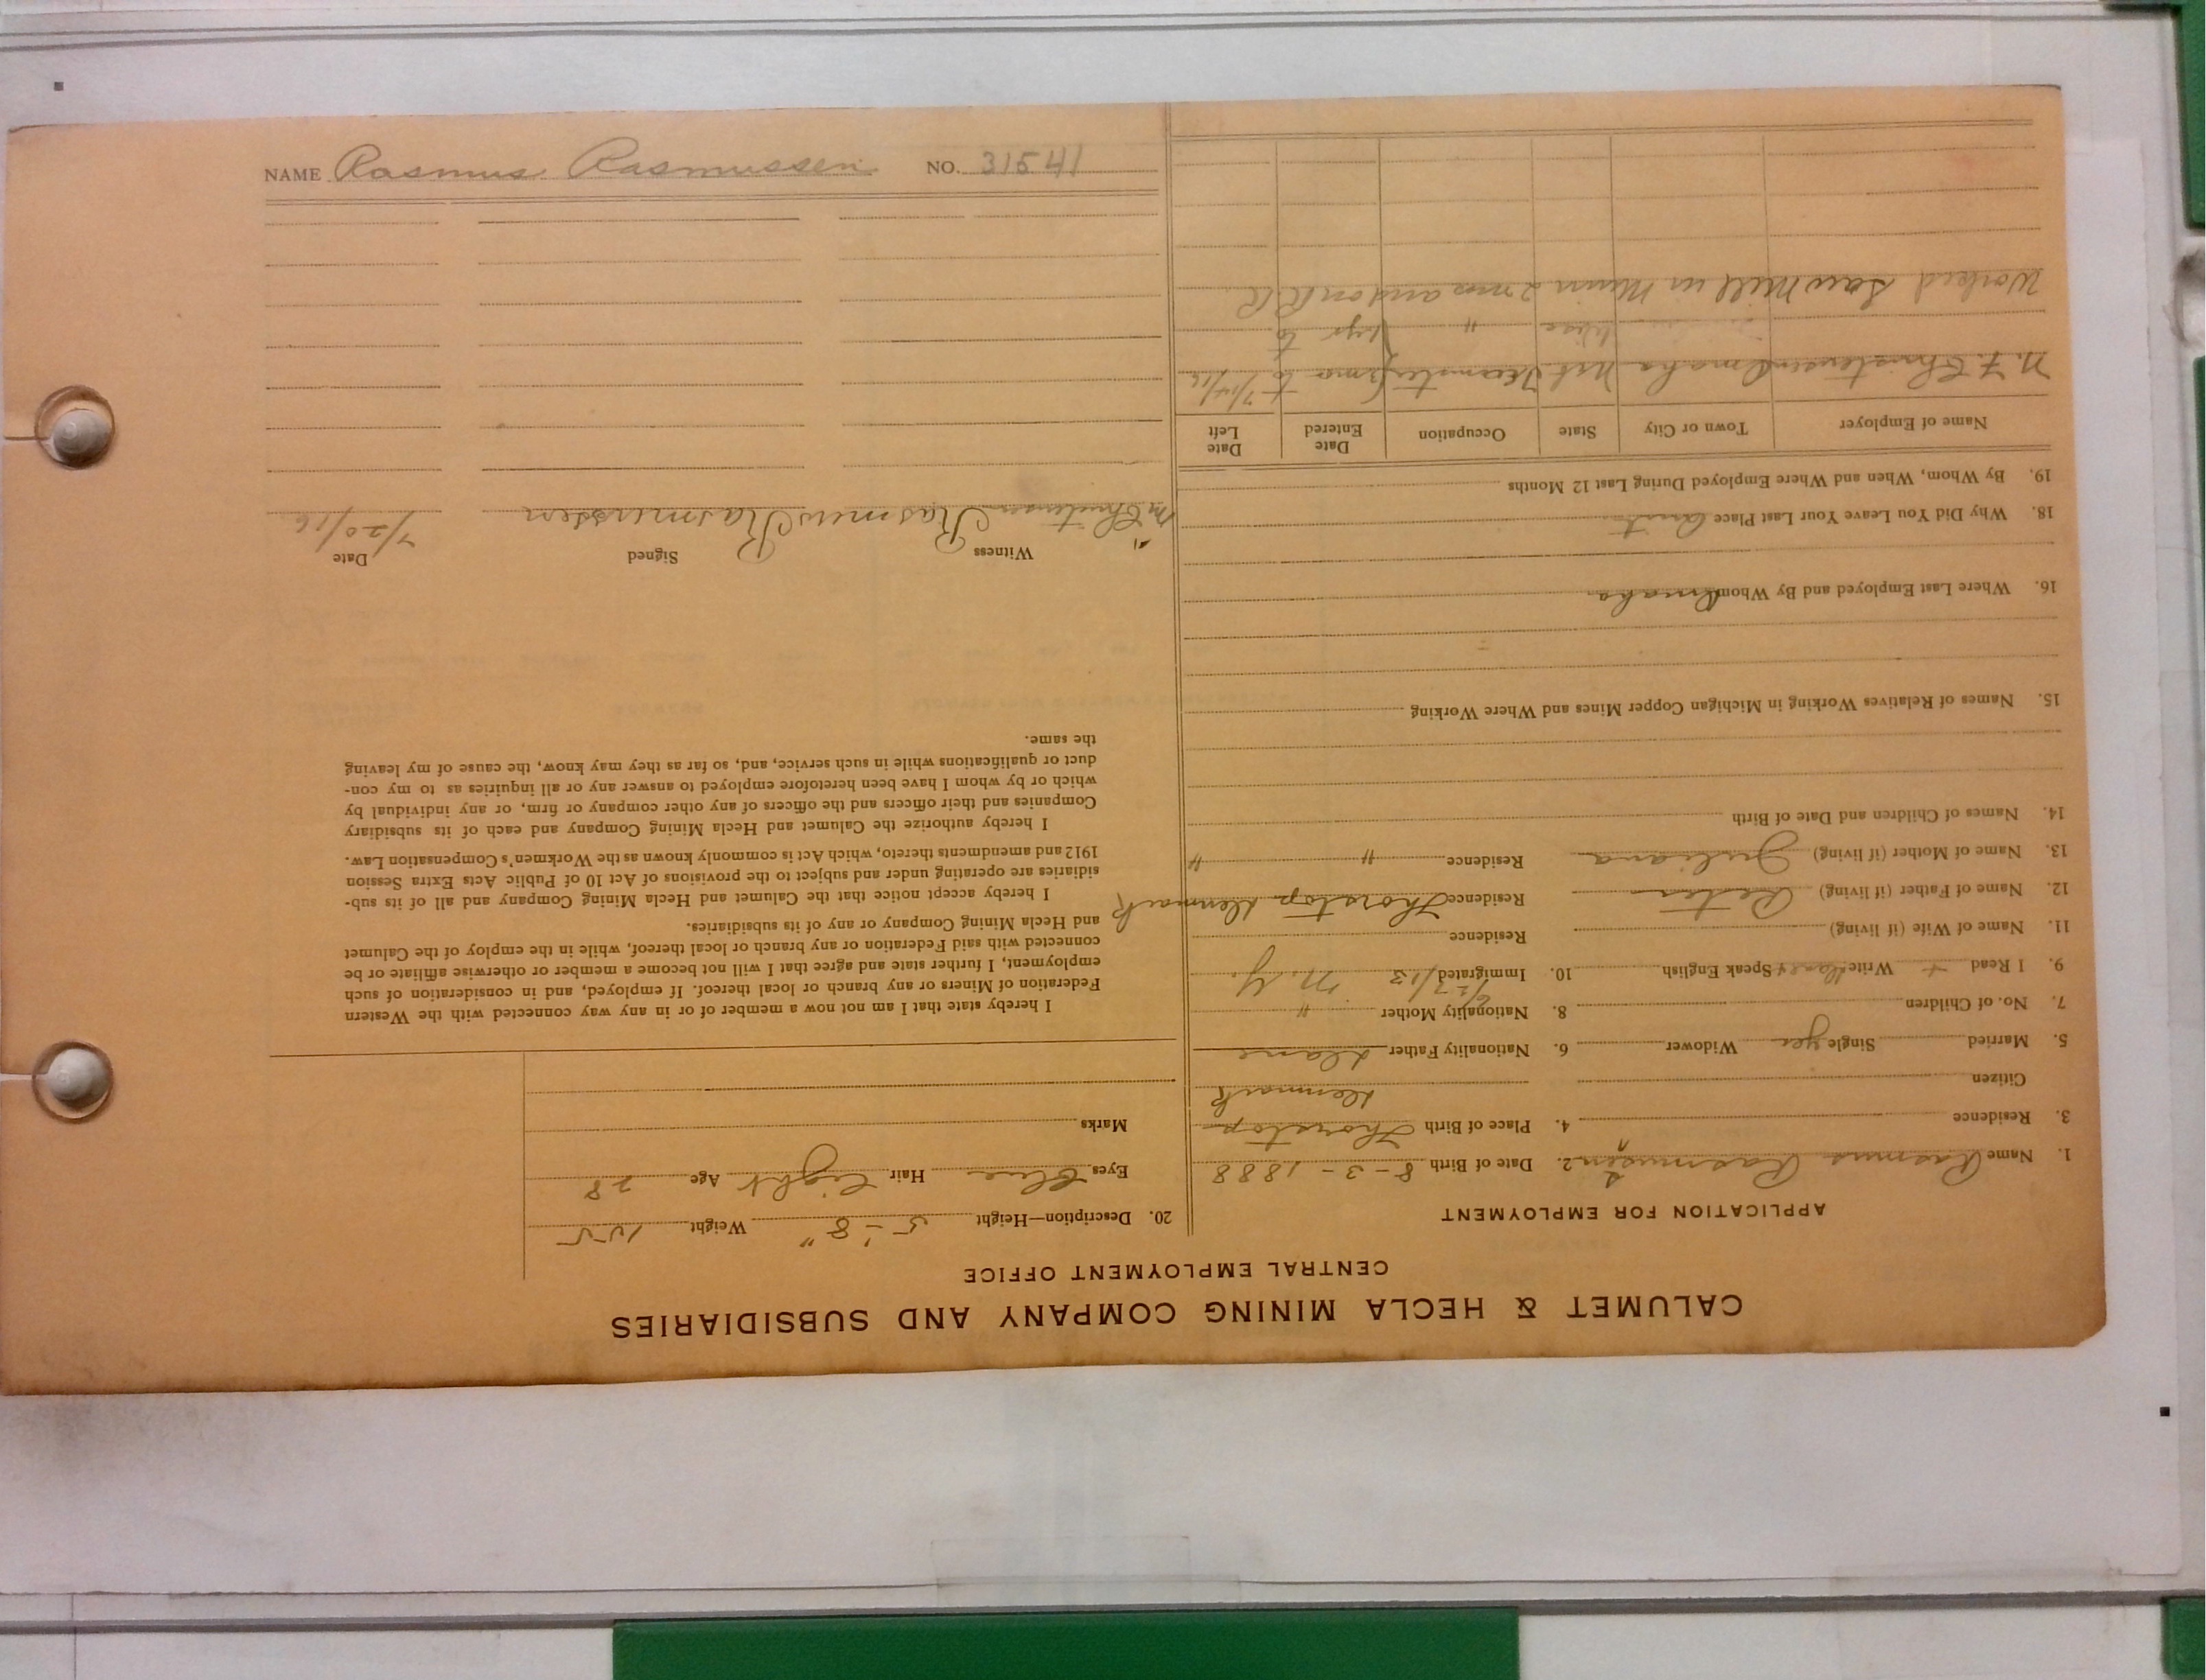 CALUMET & HECLA MINING COMPANY AND SUBSIDIARIES
CENTRAL EMPLOYMENT OFFICE
APPLICATION FOR EMPLOYMENT
1. Name Rasmus Rasmussen 2. Date of Birth 8-3-1888
3. Residence 4. Place of Birth Thorstop
Citizen Denmark
5. Married Single yes Widower 6. Nationality Father Dane
7. No. of Children 8. Nationality Mother "
9. I Read + Write Speak English 10. Immigrated N. Y.
11. Name of Wife (if living) Residence
12. Name of Father (if living) Peter Residence Thorstop Denmark
13. Name of Mother (if living) Juliana Residence " "
14. Names of Children and Date of Birth
15. Names of Relatives Working in Michigan Copper Mines and Where Working
16. Where Last Employed and By Whom Omaha
18. Why Did You Leave Your Last Place Quit
19. By Whom, When and Where Employed During Last 12 Months
Name of Employer Town or City State Occupation Date Entered Date Left
N. F. Christensen Omaha Neb Teamster 3 mo to 7/14/16
" yr to
Worked Saw Mill in Minn 2 mos and on R R
20. Description—Height 5-'8" Weight 155
Eyes Blue Hair Light Age 28
Marks
I hereby state that I am not now a member of or in any way connected with the Western
Federation of Miners or any branch or local thereof. If employed, and in consideration of such
employment, I further state and agree that I will not become a member or otherwise affiliate or be
connected with said Federation or any branch or local thereof, while in the employ of the Calumet
and Hecla Mining Company or any of its subsidiaries.
I hereby accept notice that the Calumet and Hecla Mining Company and all of its sub-
sidiaries are operating under and subject to the provisions of Act 10 of Public Acts Extra Session
1912 and amendments thereto, which Act is commonly known as the Workmen's Compensation Law.
I hereby authorize the Calumet and Hecla Mining Company and each of its subsidiary
Companies and their officers and the officers of any other company or firm, or any individual by
which or by whom I have been heretofore employed to answer any or all inquiries as to my con-
duct or qualifications while in such service, and, so far as they may know, the cause of my leaving
the same.
Witness Signed Date
Rasmus Rasmussen 7/20/16
NAME Rasmus Rasmussen NO. 31541